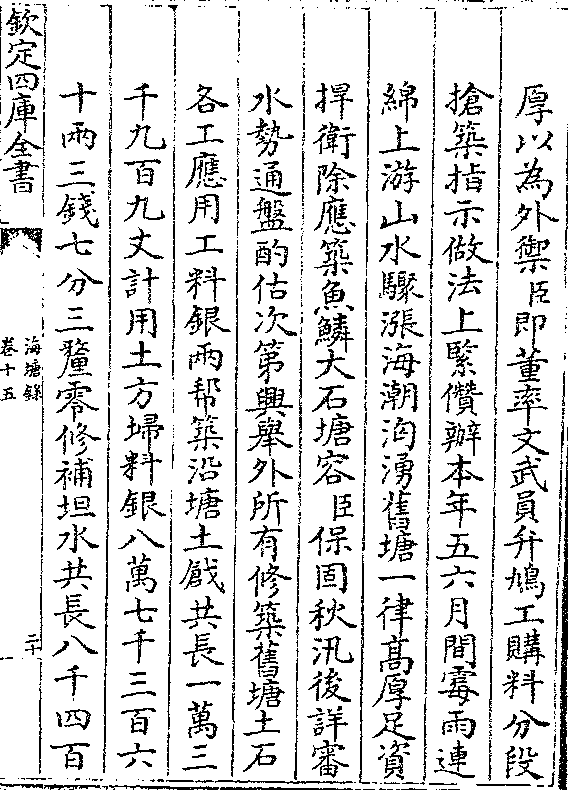 厚以為外禦臣即董率文武員弁鳩工購料分段
搶築指示做法上緊儹辦本年五六月間霉雨連
綿上游山水驟漲海潮洶湧舊塘一律髙厚足資
捍衛除應築魚鱗大石塘容臣保固秋汛後詳審
水勢通盤酌估次第興舉外所有修築舊塘土石
各工應用工料銀兩帮築沿塘土戧共長一萬三
千九百九丈計用土方埽料銀八萬七千三百六
十兩三錢七分三釐零修補坦水共長八千四百
欽定四庫全書
海塘錄
卷十五
二十